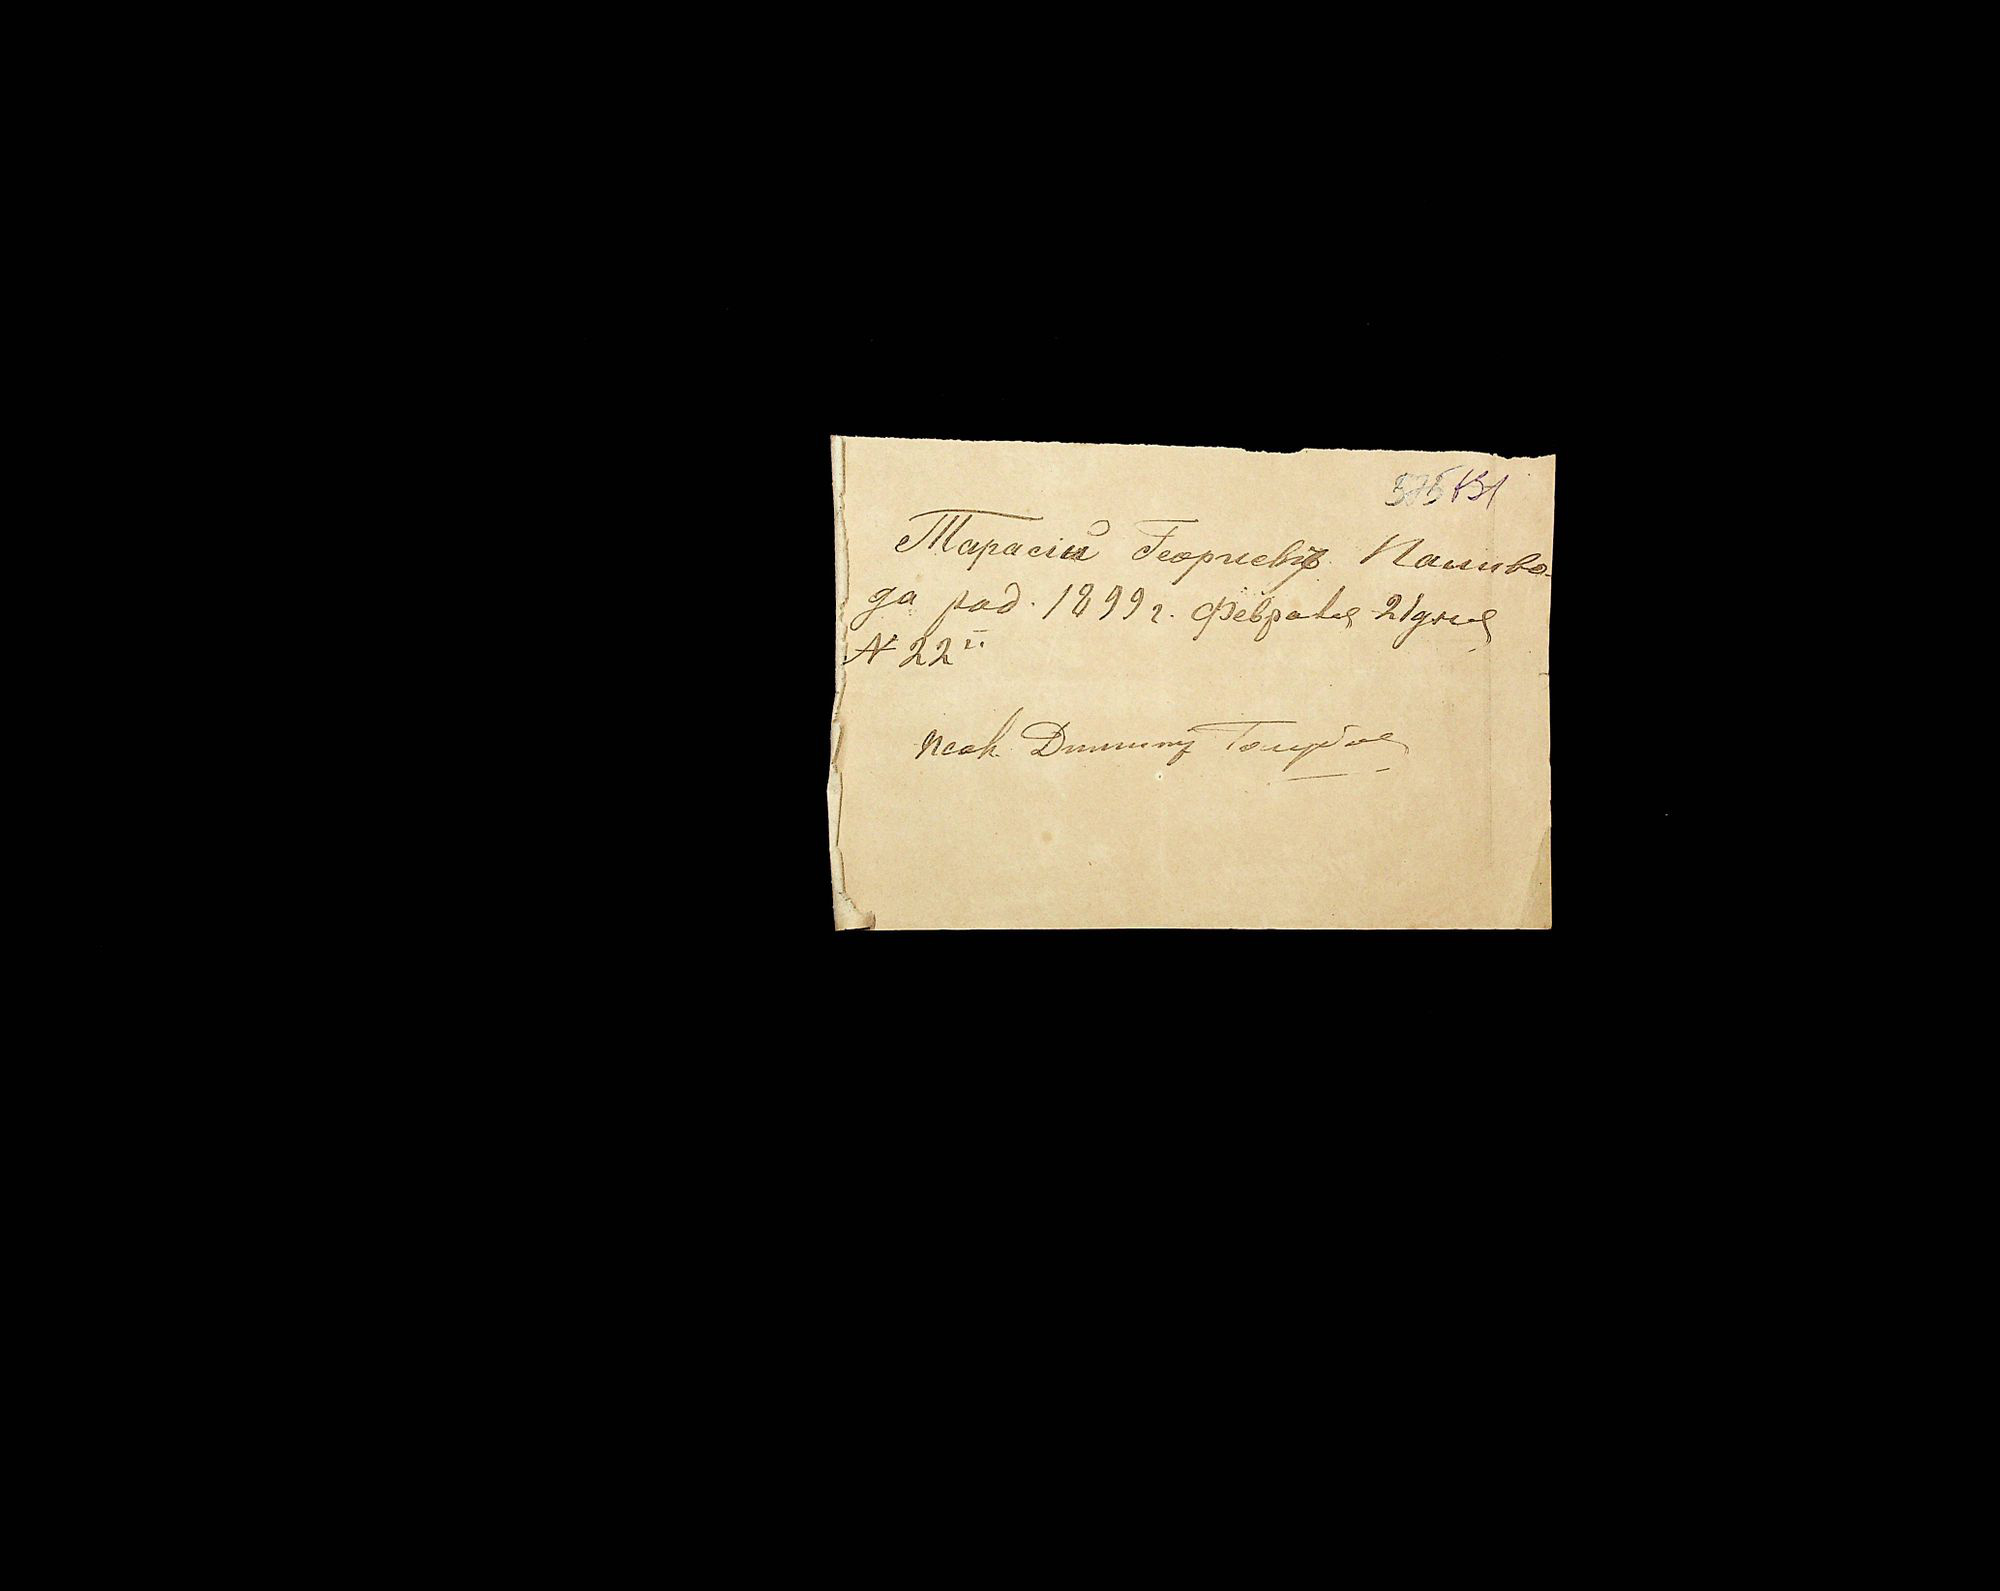 131
Тарасій Георгіевъ Паливо-
да род. 1899 г. Февраля 21 дня
№ 22й
псал. Димитр Голубов